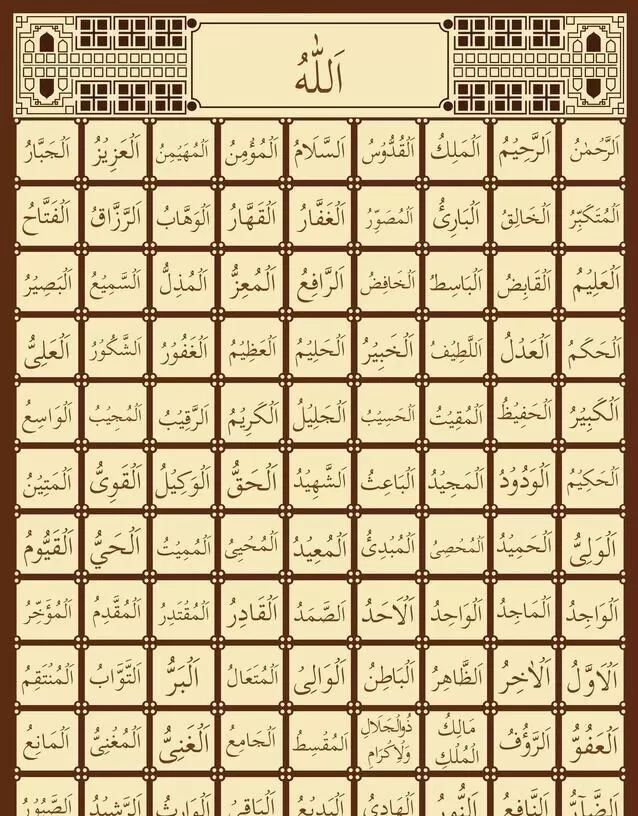 اَللّٰهُ
اَلرَّحْمٰنُ اَلرَّحِيْمُ اَلْمَلِكُ اَلْقُدُّوْسُ اَلسَّلَامُ اَلْمُؤْمِنُ اَلْمُهَيْمِنُ اَلْعَزِيْزُ اَلْجَبَّارُ
اَلْمُتَكَبِّرُ اَلْخَالِقُ اَلْبَارِئُ اَلْمُصَوِّرُ اَلْغَفَّارُ اَلْقَهَّارُ اَلْوَهَّابُ اَلرَّزَّاقُ اَلْفَتَّاحُ
اَلْعَلِيْمُ اَلْقَابِضُ اَلْبَاسِطُ اَلْخَافِضُ اَلرَّافِعُ اَلْمُعِزُّ اَلْمُذِلُّ اَلسَّمِيْعُ اَلْبَصِيْرُ
اَلْحَكَمُ اَلْعَدْلُ اَللَّطِيْفُ اَلْخَبِيْرُ اَلْحَلِيْمُ اَلْعَظِيْمُ اَلْغَفُوْرُ اَلشَّكُوْرُ اَلْعَلِىُّ
اَلْكَبِيْرُ اَلْحَفِيْظُ اَلْمُقِيْتُ اَلْحَسِيْبُ اَلْجَلِيْلُ اَلْكَرِيْمُ اَلرَّقِيْبُ اَلْمُجِيْبُ اَلْوَاسِعُ
اَلْحَكِيْمُ اَلْوَدُوْدُ اَلْمَجِيْدُ اَلْبَاعِثُ اَلشَّهِيْدُ اَلْحَقُّ اَلْوَكِيْلُ اَلْقَوِىُّ اَلْمَتِيْنُ
اَلْوَلِىُّ اَلْحَمِيْدُ اَلْمُحْصِىُ اَلْمُبْدِئُ اَلْمُعِيْدُ اَلْمُحْيِىُ اَلْمُمِيْتُ اَلْحَيُّ اَلْقَيُّوْمُ
اَلْوَاجِدُ اَلْمَاجِدُ اَلْوَاحِدُ اَلْاَحَدُ اَلصَّمَدُ اَلْقَادِرُ اَلْمُقْتَدِرُ اَلْمُقَدِّمُ اَلْمُؤَخِّرُ
اَلْاَوَّلُ اَلْاٰخِرُ اَلظَّاهِرُ اَلْبَاطِنُ اَلْوَالِىُ اَلْمُتَعَالُ اَلْبَرُّ اَلتَّوَّابُ اَلْمُنْتَقِمُ
اَلْعَفُوُّ اَلرَّؤُفُ مَالِكُ الْمُلْكِ ذُوالْجَلَالِ وَلْاِكْرَامِ اَلْمُقْسِطُ اَلْجَامِعُ اَلْغَنِىُّ اَلْمُغْنِىُّ اَلْمَانِعُ
اَلضَّآرُّ اَلنَّافِعُ اَلنُّوْرُ اَلْهَادِىُ اَلْبَدِيْعُ اَلْبَاقِىُ اَلْوَارِثُ اَلرَّشِيْدُ اَلصَّبُوْرُ